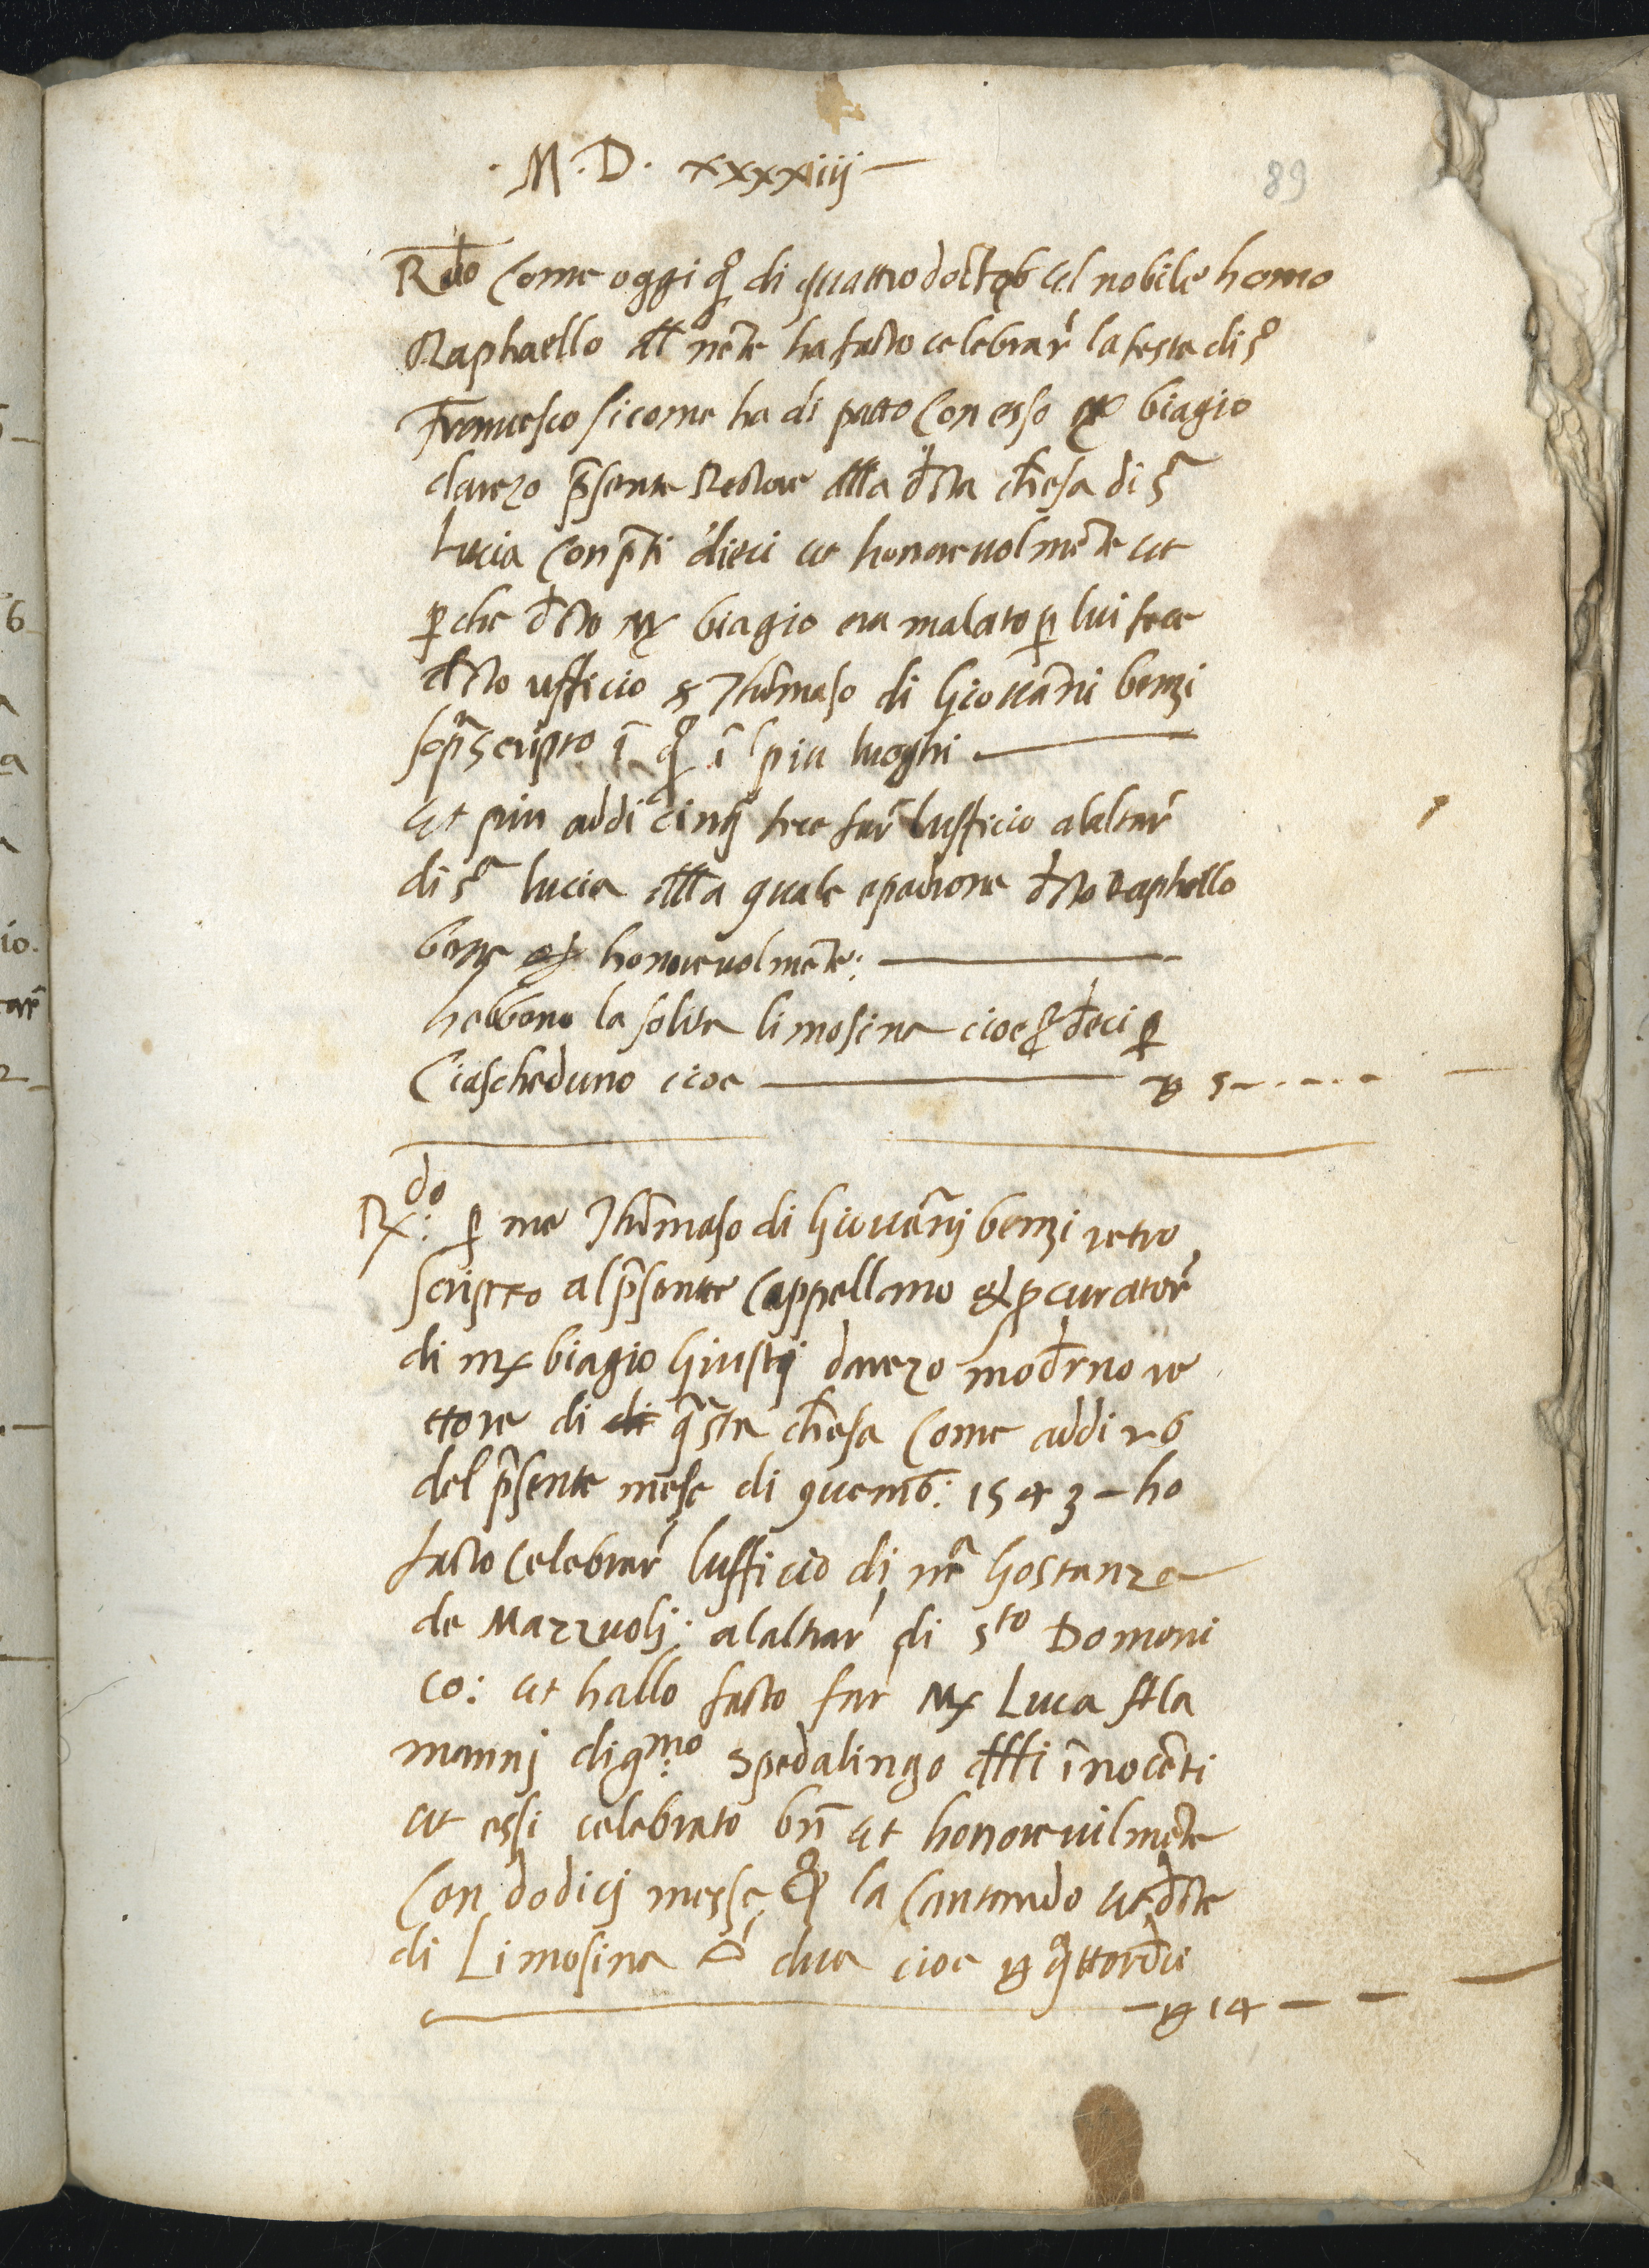 · M · D · xxxxiiij
89
R.do Come oggi q̊ di quattro doctob el nobile homo
Raphaello del nēte ha facto celebrar̄ la festa di sº
Francesco sicome ha di patto con esso mº biagio
davezo p̄sente Rectore della d̄cta chiesa di sª
Lucia con p̄ti dieci et honorevolmēte et
p̱che d̄cto mº biagio era malato p̱ lui fece
d̄cto ufficio s Thōmaso di Giovāni benzi
sop̄ascripto ī q̊ ī piu luoghi
et piu addi cinq̄ fece far̄ lufficio alaltar̄
di sª lucia della quale epadrone d̄cto Raphello
bene et honorevolmēte:
hebbono la solita limosina cioe sº dieci p̱
Ciascheduno cioe 5
Rx:do p̱ me Thōmaso di Giovānj benzi retro
scripto al p̄sente Cappellano et p̱curator̄
di mº biagio Giustij davezo moderno re
ttore di q̄sta chiesa Come addi 26
del p̄sente mese di 9uemb: 1543 – ho
facto celebrar̄ lufficio di mª Gostanza
de Mazzuolj: alaltar̄ di Sto Domeni
co: et hallo facto far mº Luca Ala
mannj dig:mo Spedalingo delli īnocēti
et essi celebrato bn̄ et honorevilmēte
Con dodicj messe la Cantando et d̄cte
di Limosina dua cioe q̊ttordici
14